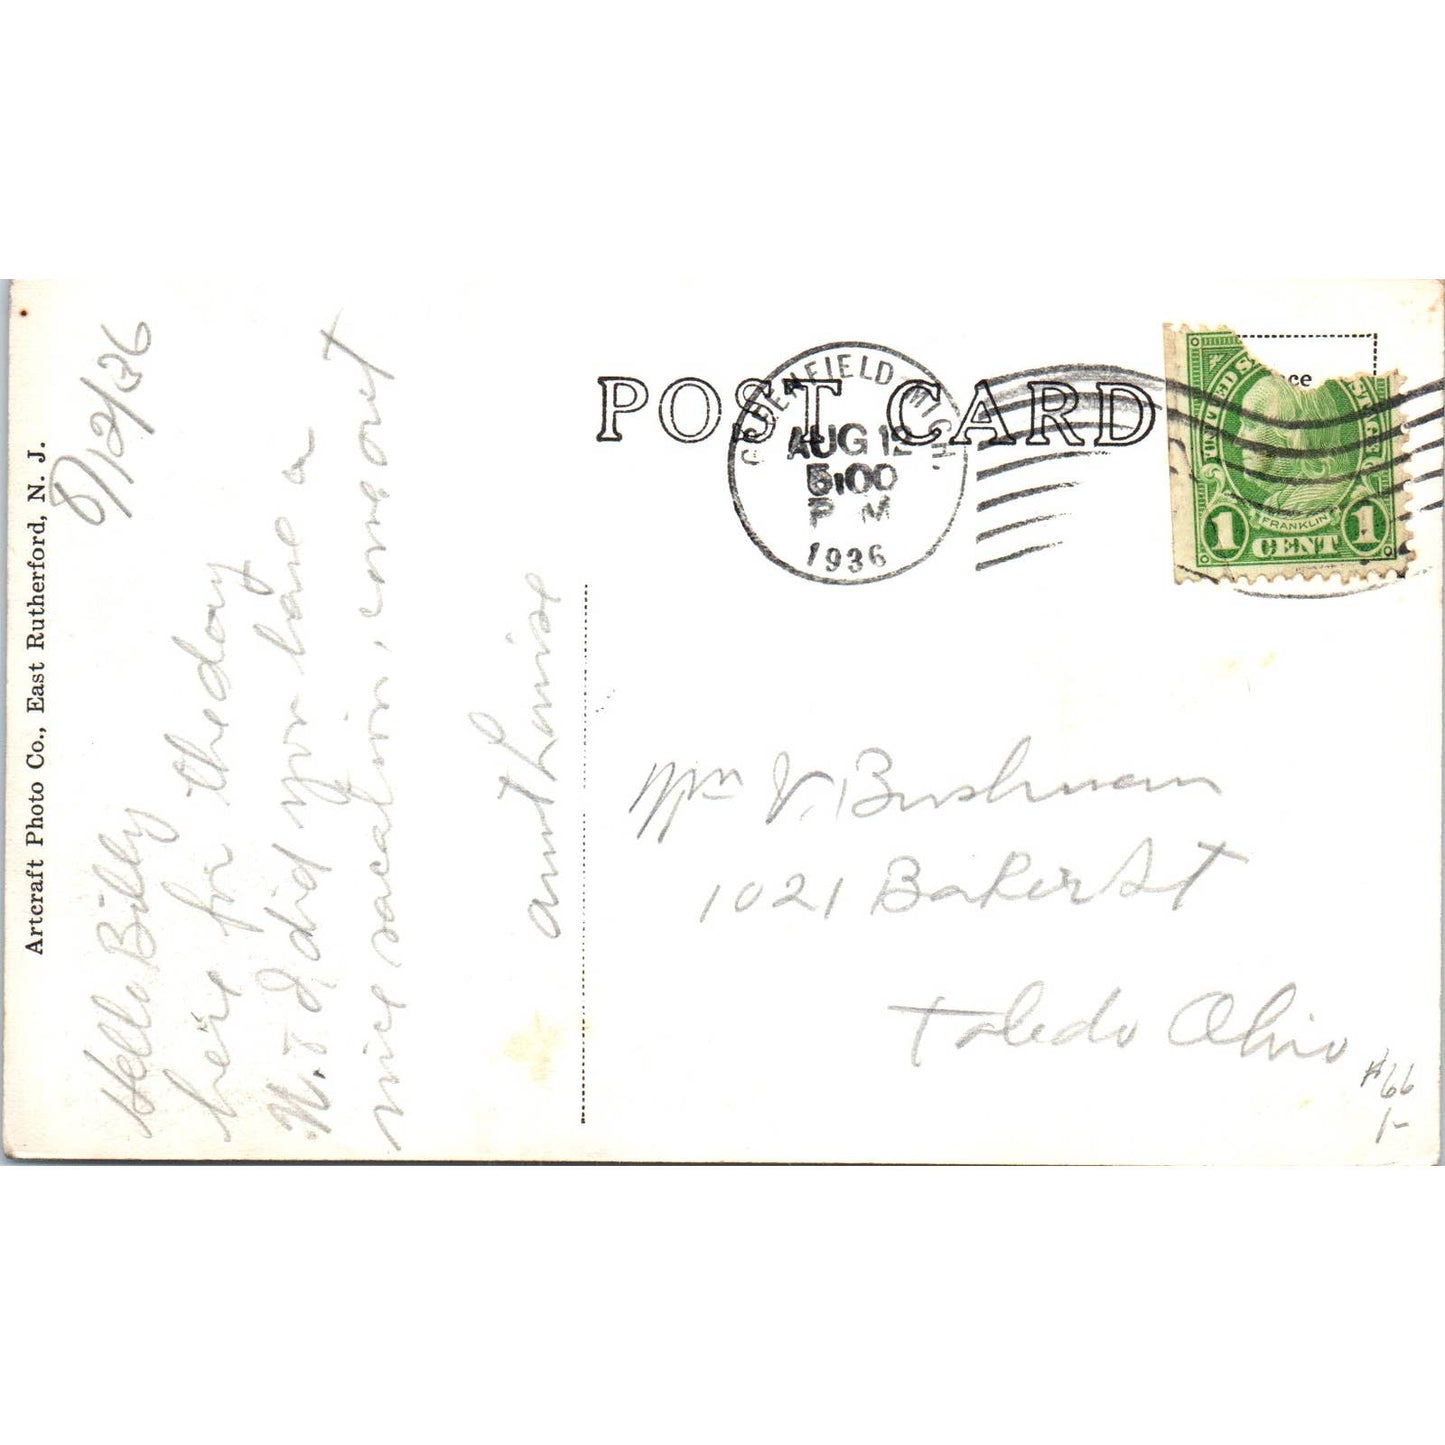 Artcraft Photo Co., East Rutherford, N. J.
8/12/36
Hello Billy
here for the day
W. & I did you have a
nice vacation, come out
aunt Louise
POST CARD
MICH.
AUG 12
5:00
P M
1936
UNITED S
1 CENT 1
FRANKLIN
ce
V. Bushman
1021 Baker St
Toledo Ohio
#66
1-